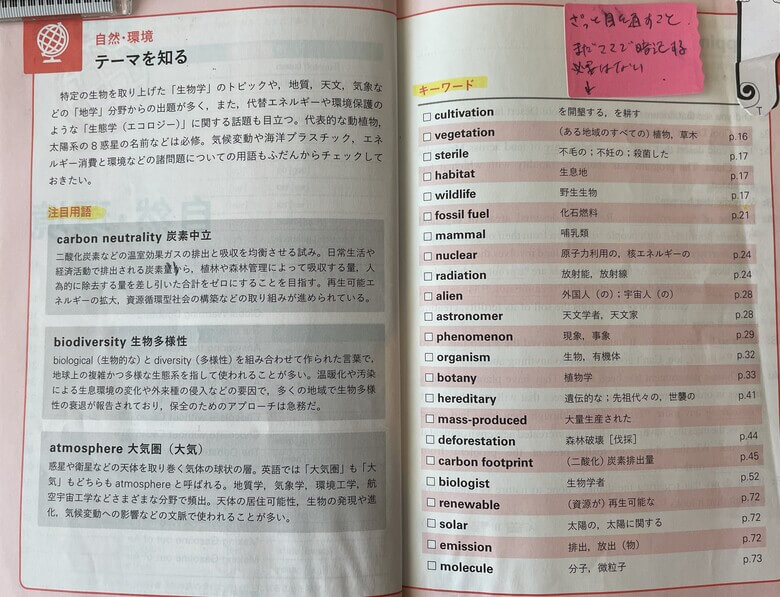 自然・環境
テーマを知る
特定の生物を取り上げた「生物学」のトピックや，地質，天文，気象な
どの「地学」分野からの出題が多く，また，代替エネルギーや環境保護の
ような「生態学（エコロジー）」に関する話題も目立つ。代表的な動植物，
太陽系の8惑星の名前などは必修。気候変動や海洋プラスチック，エネ
ルギー消費と環境などの諸問題についての用語もふだんからチェックして
おきたい。
注目用語
carbon neutrality 炭素中立
二酸化炭素などの温室効果ガスの排出と吸収を均衡させる試み。日常生活や
経済活動で排出される炭素量から，植林や森林管理によって吸収する量，人
為的に除去する量を差し引いた合計をゼロにすることを目指す。再生可能エ
ネルギーの拡大，資源循環型社会の構築などの取り組みが進められている。
biodiversity 生物多様性
biological（生物的な）と diversity（多様性）を組み合わせて作られた言葉で，
地球上の複雑かつ多様な生態系を指して使われることが多い。温暖化や汚染
による生息環境の変化や外来種の侵入などの要因で，多くの地域で生物多様
性の衰退が報告されており，保全のためのアプローチは急務だ。
atmosphere 大気圏（大気）
惑星や衛星などの天体を取り巻く気体の球状の層。英語では「大気圏」も「大
気」もどちらも atmosphere と呼ばれる。地質学，気象学，環境工学，航
空宇宙工学などさまざまな分野で頻出。天体の居住可能性，生物の発現や進
化，気候変動への影響などの文脈で使われることが多い。
ざっと目を通すこと
まだここで暗記する
必要はない
↓
キーワード
□ cultivation を開墾する，を耕す
□ vegetation （ある地域のすべての）植物，草木 p.16
□ sterile 不毛の；不妊の；殺菌した p.17
□ habitat 生息地 p.17
□ wildlife 野生生物 p.17
□ fossil fuel 化石燃料 p.21
□ mammal 哺乳類
□ nuclear 原子力利用の，核エネルギーの p.24
□ radiation 放射能，放射線 p.24
□ alien 外国人（の）；宇宙人（の） p.28
□ astronomer 天文学者，天文家 p.28
□ phenomenon 現象，事象 p.29
□ organism 生物，有機体 p.32
□ botany 植物学 p.33
□ hereditary 遺伝的な；先祖代々の，世襲の p.41
□ mass-produced 大量生産された
□ deforestation 森林破壊［伐採］ p.44
□ carbon footprint （二酸化）炭素排出量 p.45
□ biologist 生物学者 p.52
□ renewable （資源が）再生可能な p.72
□ solar 太陽の，太陽に関する p.72
□ emission 排出，放出（物） p.72
□ molecule 分子，微粒子 p.73